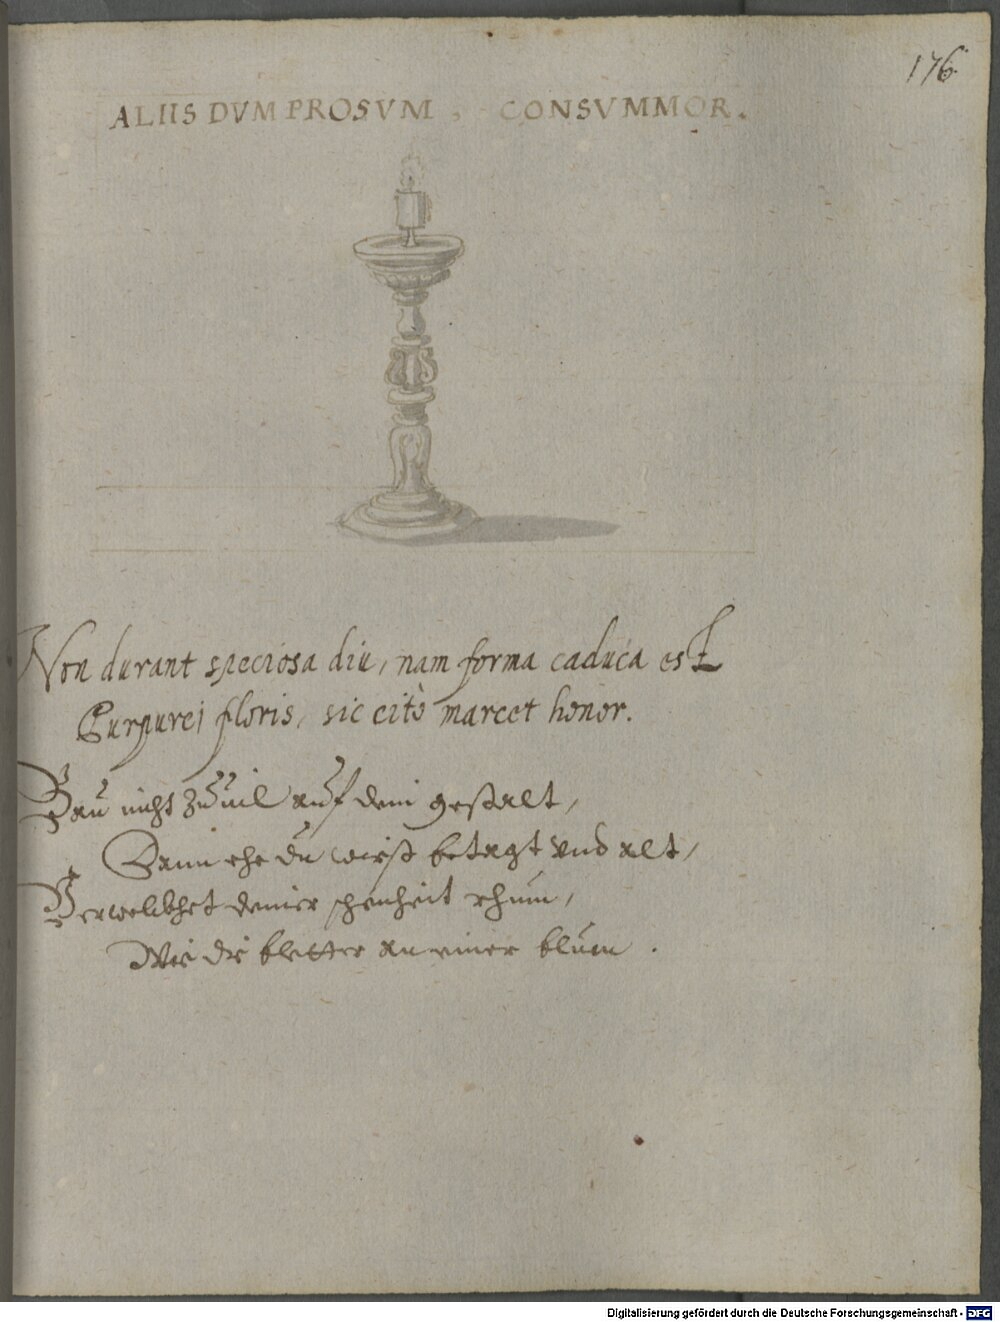 176
ALIIS DVM PROSVM, CONSVMMOR.
Non durant speciosa diu, nam forma caduca est
Purpurei floris, sic citò marcet honor.
Bau nicht zu uil auf dein gestalt,
Dann ehe du wirst betagt vnd alt,
Verwelkhet deiner schenheit rhum,
Wie die bletter an einer blum.
Digitalisierung gefördert durch die Deutsche Forschungsgemeinschaft - DFG